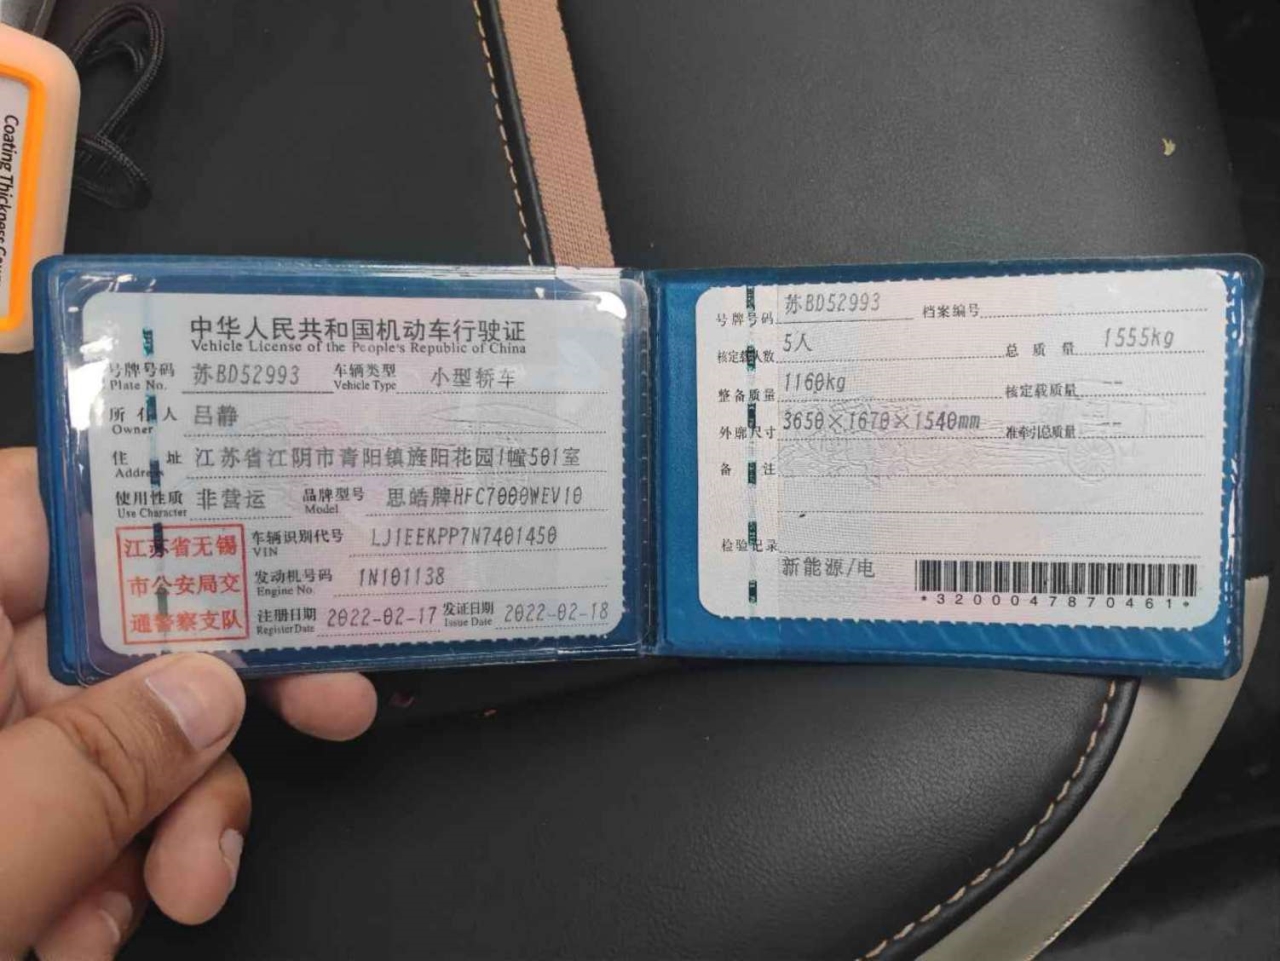 Coating Thickness
中华人民共和国机动车行驶证
Vehicle License of the People's Republic of China
号牌号码 苏BD52993 车辆类型 小型轿车
Plate No. Vehicle Type
所有人 吕静
Owner
住址 江苏省江阴市青阳镇旌阳花园1幢501室
Address
使用性质 非营运 品牌型号 思皓牌HFC7000WEV10
Use Character Model
江苏省无锡
市公安局交
通警察支队
车辆识别代号 LJ1EEKPP7N7401450
VIN
发动机号码 1N101138
Engine No.
注册日期 2022-02-17 发证日期 2022-02-18
Register Date Issue Date
号牌号码 苏BD52993 档案编号
核定载人数 5人 总质量 1555kg
整备质量 1160kg 核定载质量 --
外廓尺寸 3650×1670×1540mm 准牵引总质量 --
备注
检验记录
新能源/电
*3200047870461*